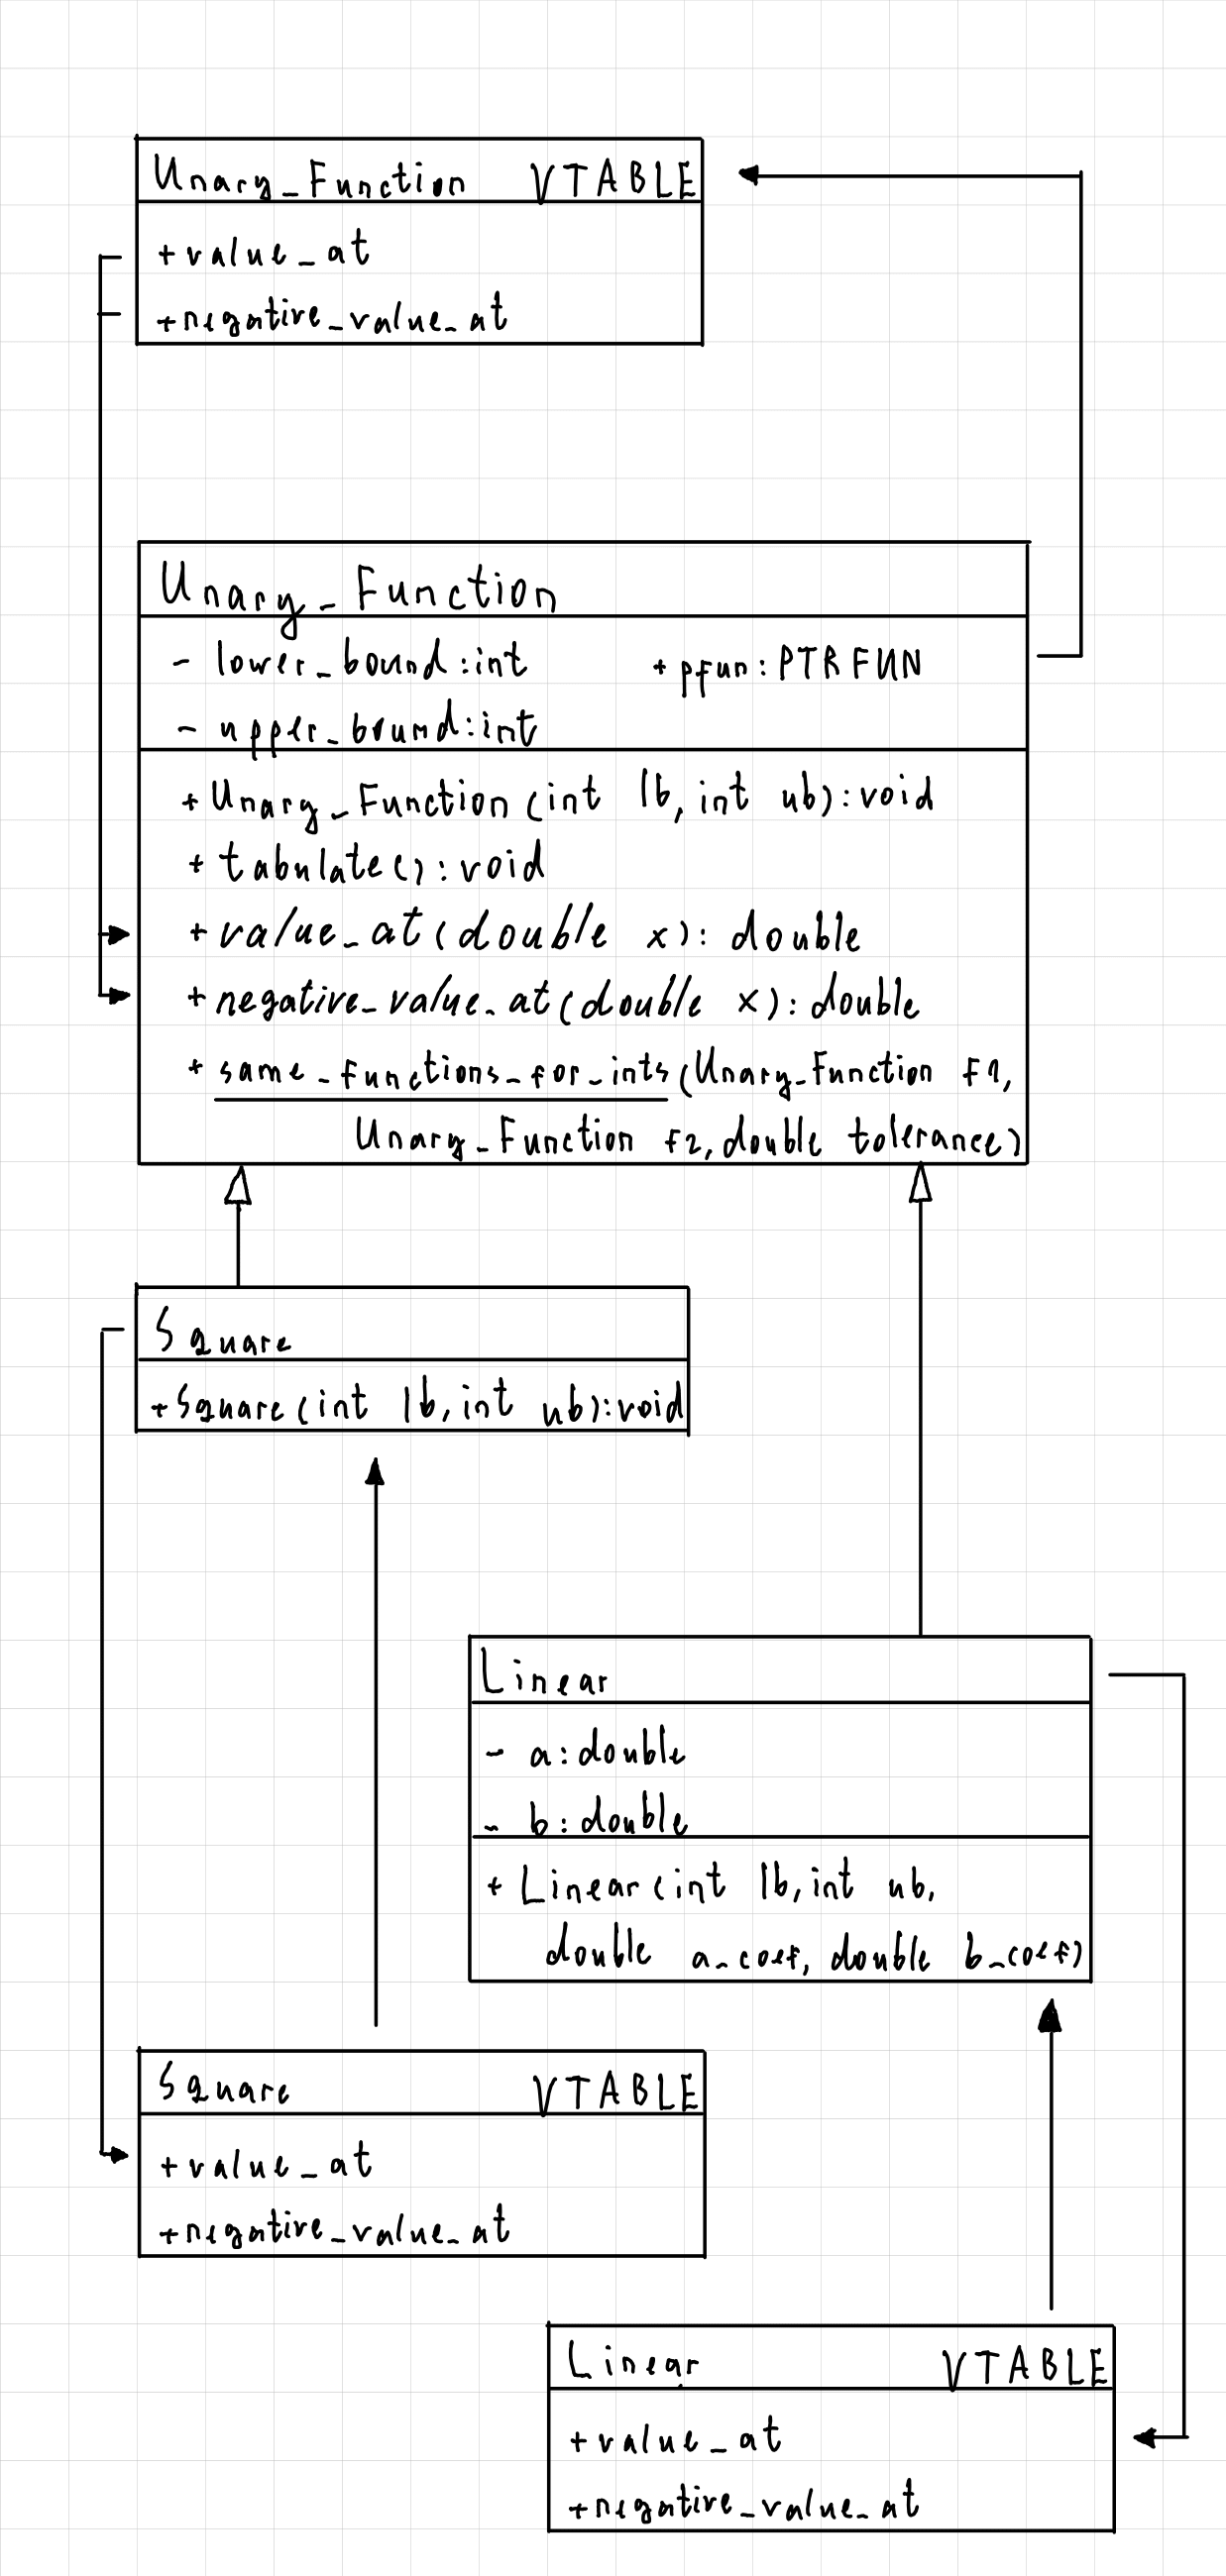 Unary_Function VTABLE
+value_at
+negative_value_at
Unary_Function
- lower_bound:int + pfun: PTRFUN
- upper_bound:int
+ Unary_Function(int lb, int ub):void
+ tabulate():void
+ value_at(double x): double
+ negative_value_at(double x): double
+ same_functions_for_ints(Unary_Function f1,
Unary_Function f2, double tolerance)
Square
+Square(int lb, int ub):void
Linear
- a:double
- b:double
+ Linear(int lb, int ub,
double a_coef, double b_coef)
Square VTABLE
+value_at
+negative_value_at
Linear VTABLE
+value_at
+negative_value_at